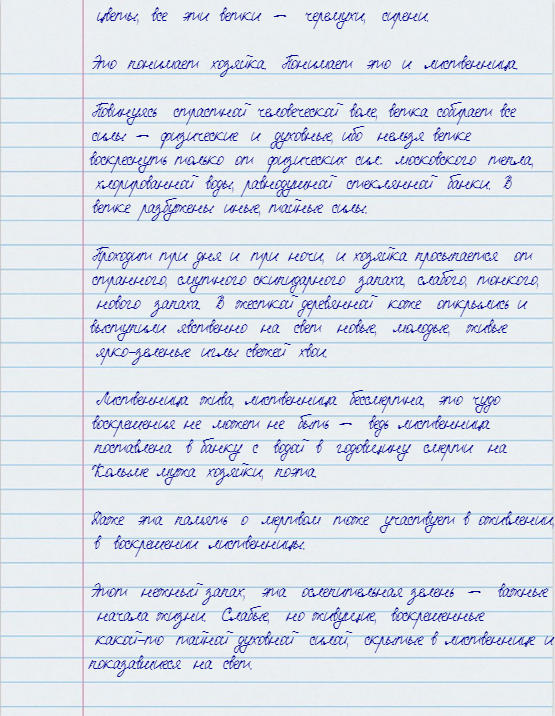 цветы, все эти ветки — черемухи, сирени.
Это понимает хозяйка. Понимает это и лиственница.
Повинуясь страстной человеческой воле, ветка собирает все
силы — физические и духовные, ибо нельзя ветке
воскреснуть только от физических сил: московского тепла,
хлорированной воды, равнодушной стеклянной банки. В
ветке разбужены иные, тайные силы.
Проходит три дня и три ночи, и хозяйка просыпается от
странного, смутного скипидарного запаха, слабого, тонкого,
нового запаха. В жесткой деревянной коже открылись и
выступили явственно на свет новые, молодые, живые
ярко-зеленые иглы свежей хвои.
Лиственница жива, лиственница бессмертна, это чудо
воскрешения не может не быть — ведь лиственница
поставлена в банку с водой в годовщину смерти на
Колыме мужа хозяйки, поэта.
Даже эта память о мертвом тоже участвует в оживлении,
в воскрешении лиственницы.
Этот нежный запах, эта ослепительная зелень — важные
начала жизни. Слабые, но живущие, воскрешенные
какой-то тайной духовной силой, скрытые в лиственнице и
показавшиеся на свет.